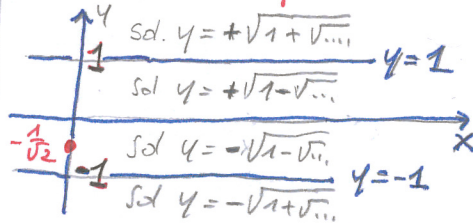 y
sol. y = +√1+√....
1
y=1
sol y = +√1-√...
x
-1/√2
sol y = -√1-√...
-1
y=-1
sol y = -√1+√...